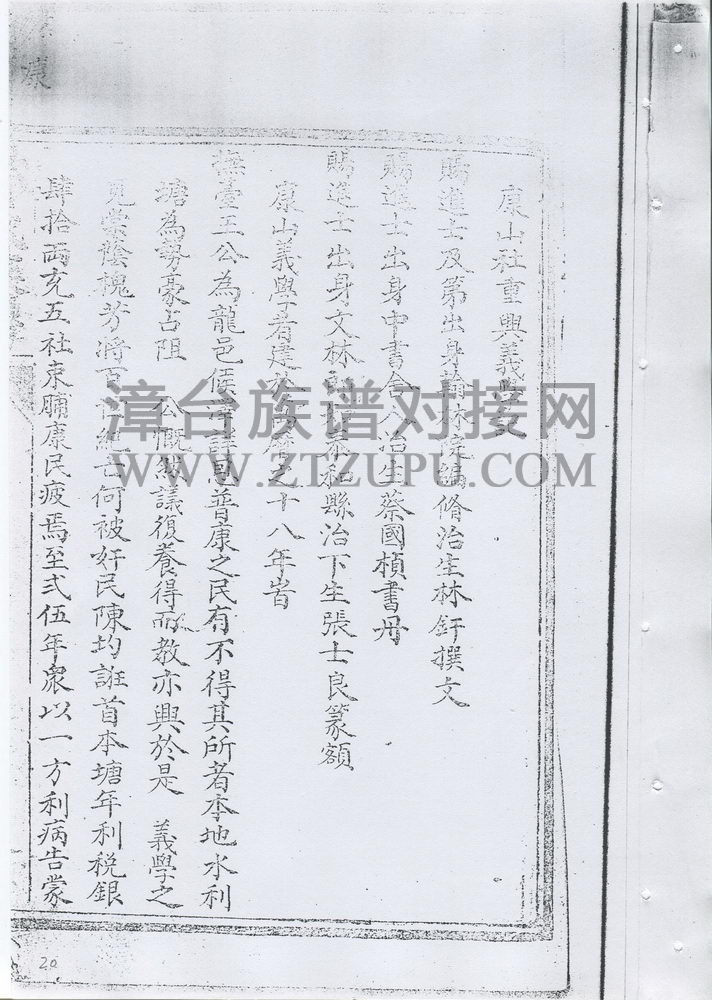 康山社重興義學文
賜進士及第出身翰林院編脩治生林釬撰文
賜進士出身中書舍人治生蔡國楨書丹
賜進士出身文林郎縣治下生張士良篆額
康山義學者建於之十八年皆
撫臺王公為龍邑候時詳思普康之民有不得其所者本地水利
塘為勢豪占阻 公慨然議復養得而教亦興於是 義學之
見棠蔭槐芳將百世何被奸民陳圴誑首本塘年利稅銀
肆拾兩充五社束脯康民疲焉至弍伍年衆以一方利病告蒙
康
20
漳台族谱对接网
WWW.ZTZUPU.COM